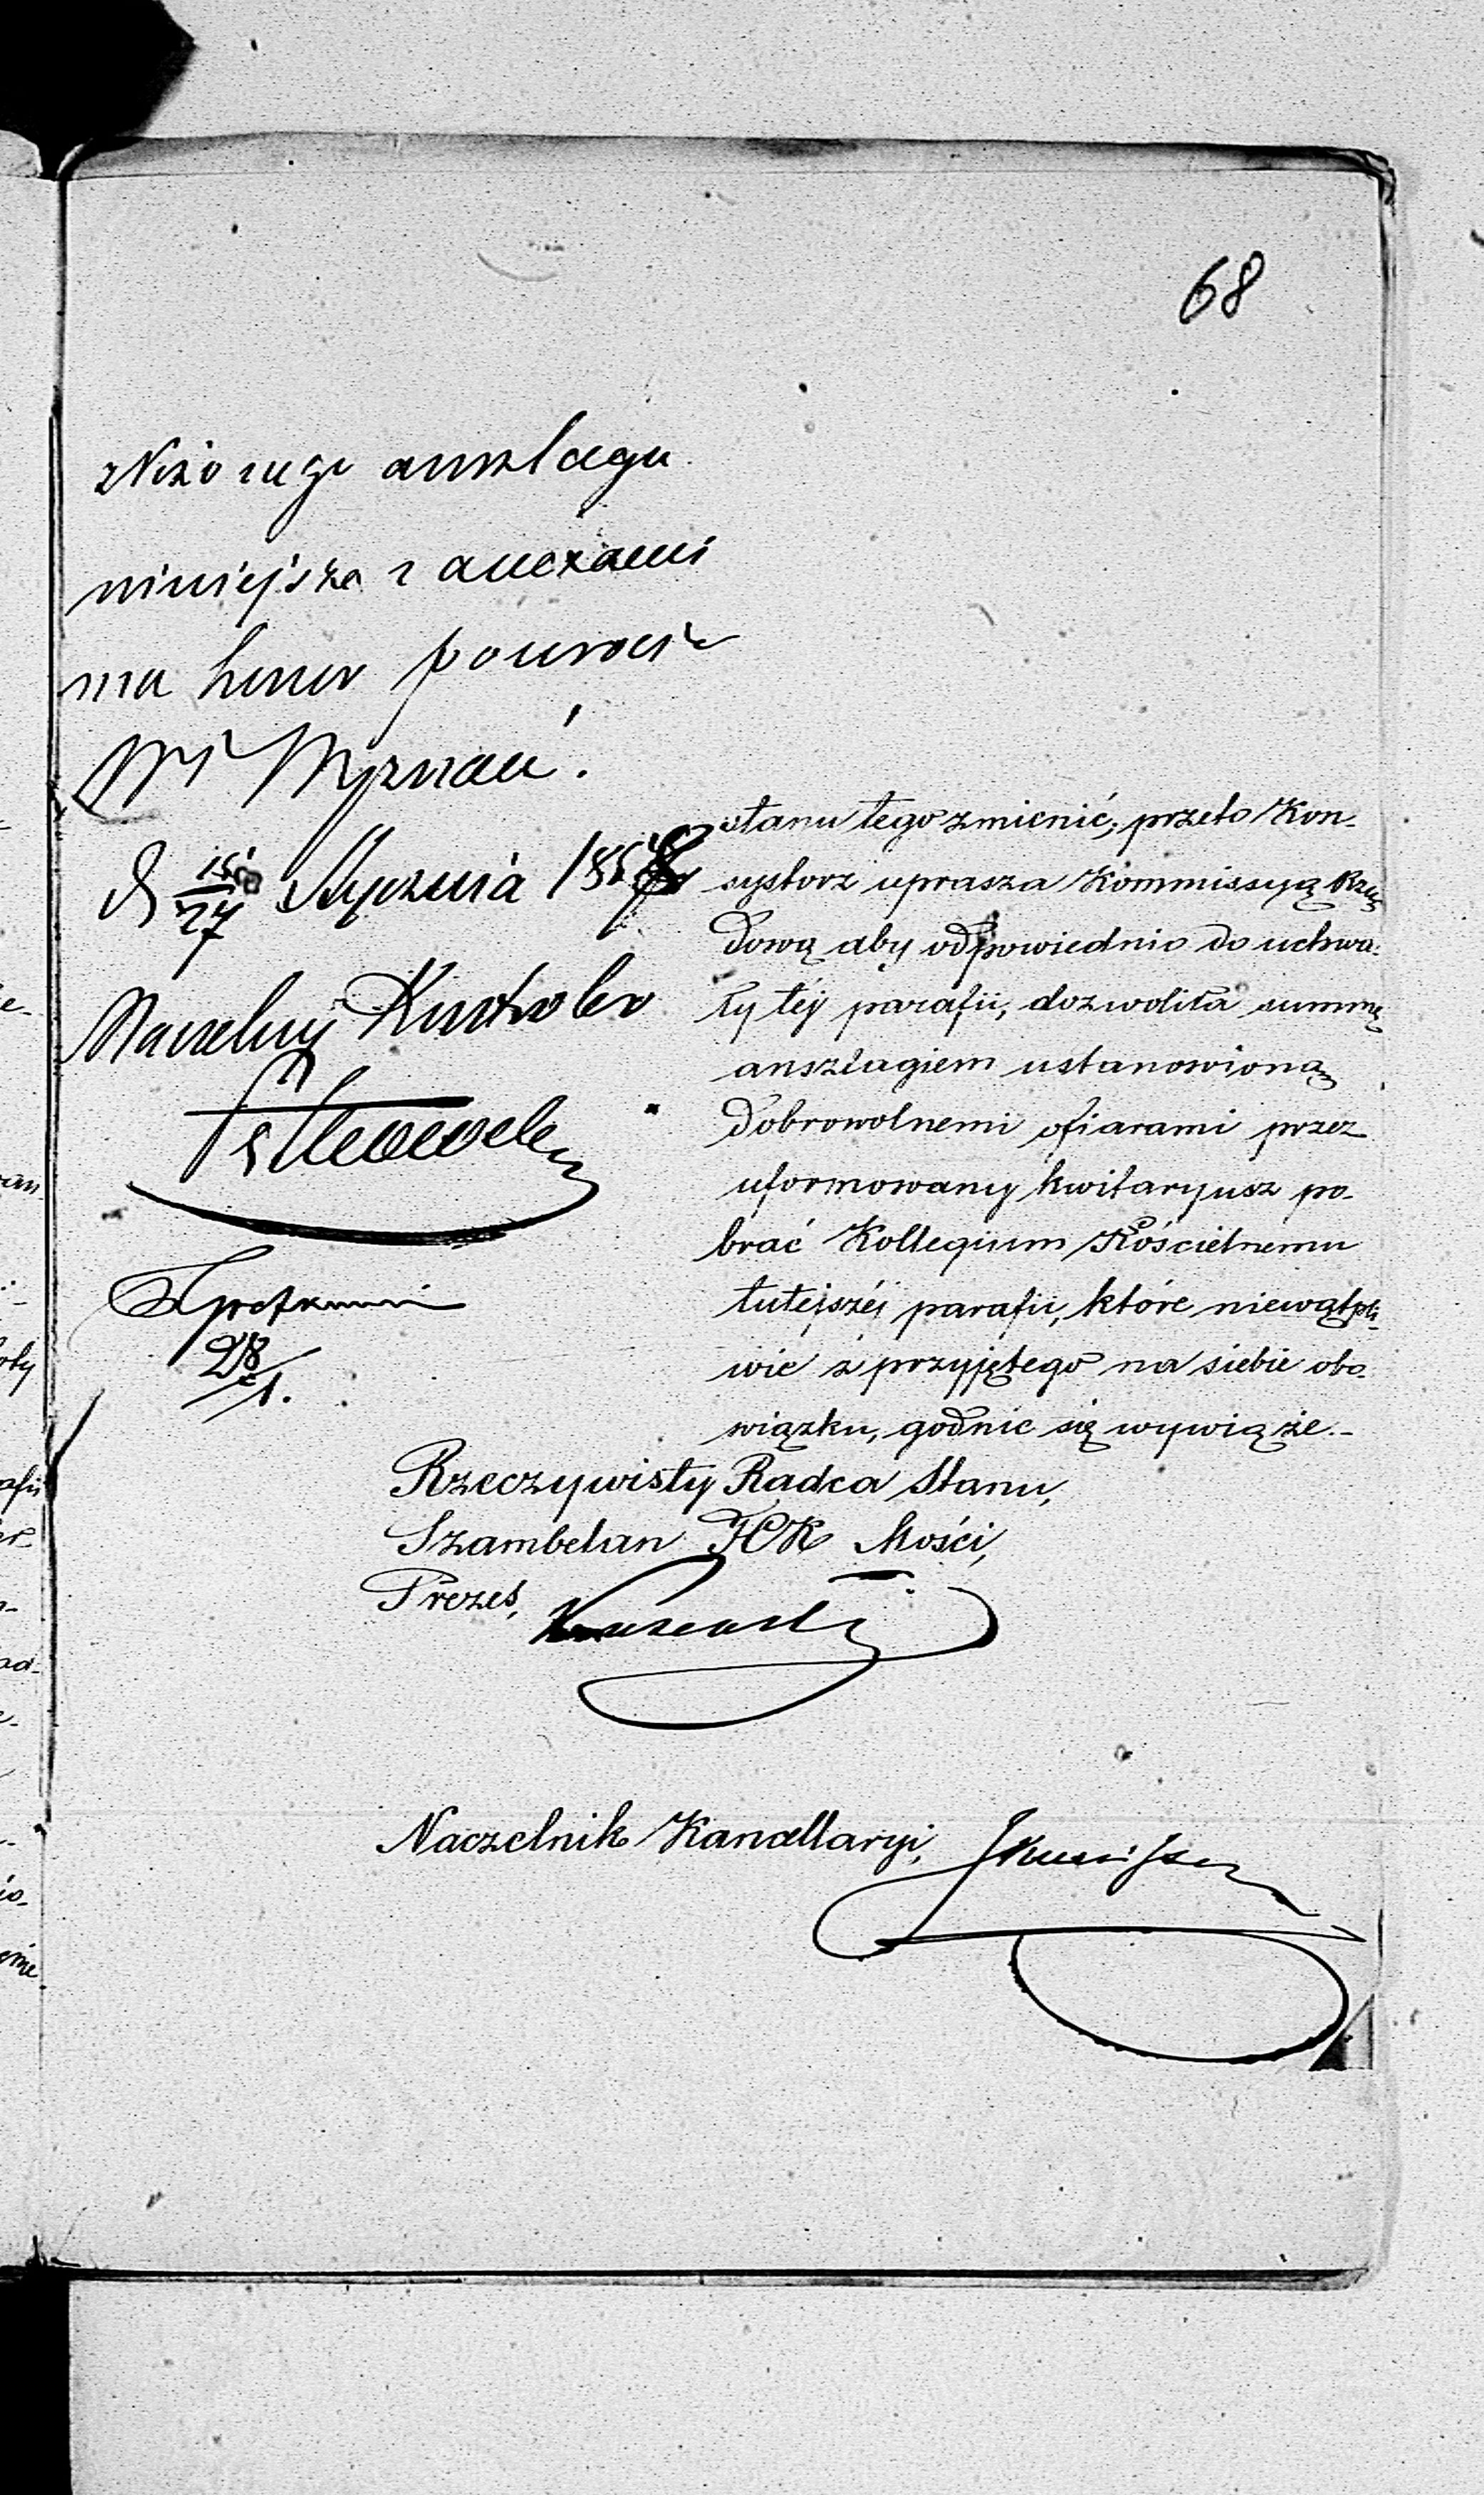 68
anszlagu
niniejsze z anexami
ma honor powrócić
Wł Wyznań.
D 15/27 Stycznia 1858
Naczelny Kontroler
28/1.
stanu tego zmienić; przeto Kon-
systorz uprasza Kommissyą Rzą-
dową aby odpowiednio do uchwa-
ły téj parafii, dozwoliła summę
anszlagiem ustanowioną
dobrowolnemi ofiarami przez
uformowany kwitaryusz po-
brać Kollegium Kościelnemu
tutejszéj parafii, które niewątpli-
wie z przyjętego na siebie obo-
wiązku, godnie się wywiąże.-
Rzeczywisty Radca Stanu,
Szambelan JCK Mości,
Prezes,
Naczelnik Kancellaryi,